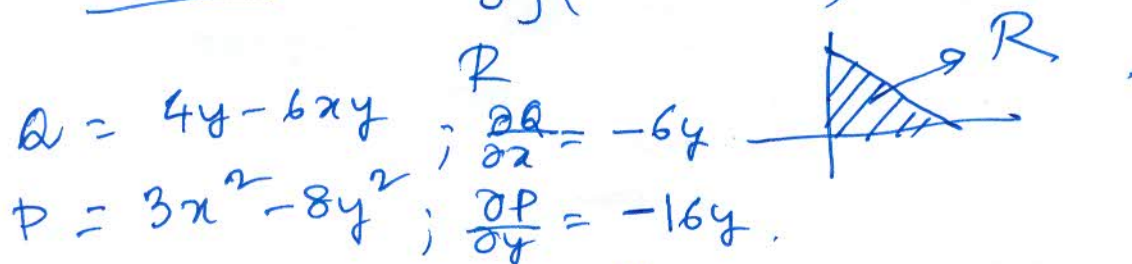 R
R
Q = 4y - 6xy ; ∂Q/∂x = -6y
P = 3x² - 8y² ; ∂P/∂y = -16y.